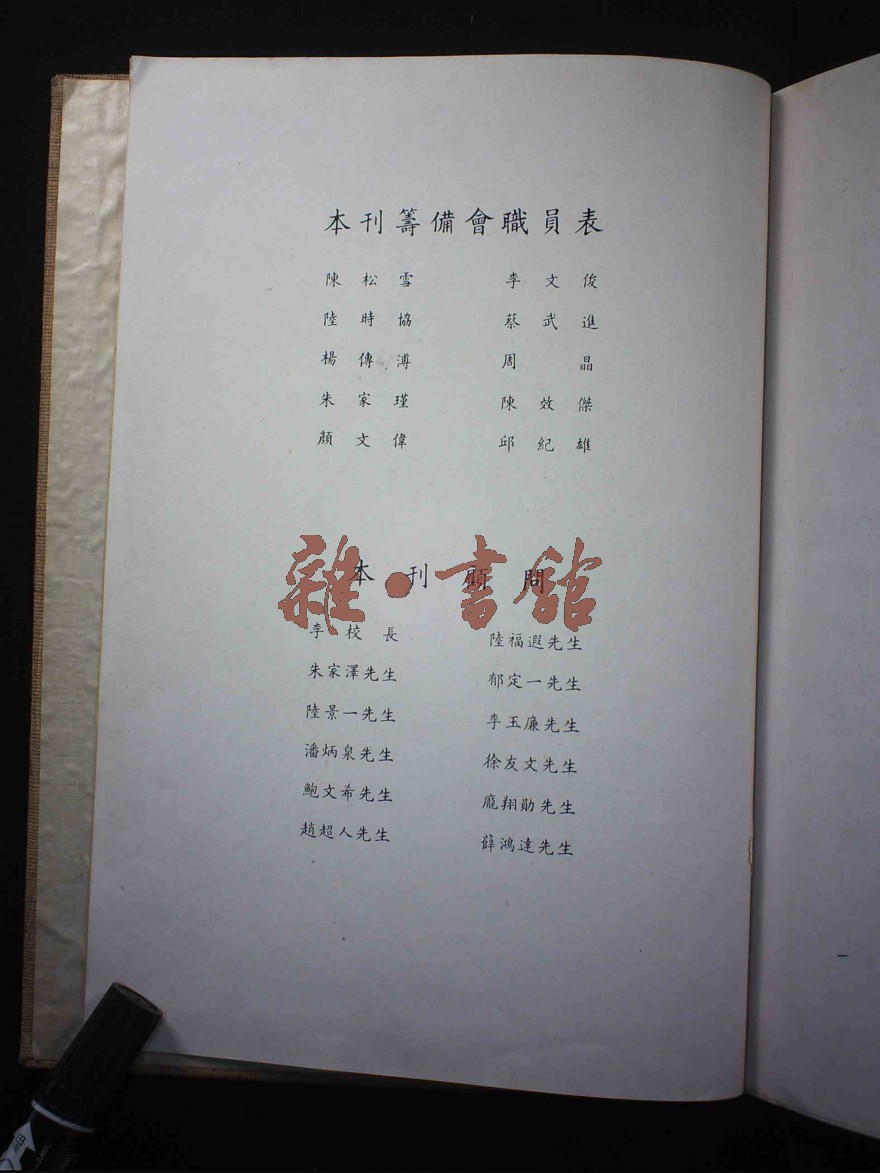 本刊籌備會職員表
陳松雪 李文俊
陸時協 蔡武進
楊傳溥 周晶
朱家瑾 陳效傑
顏文偉 邱紀雄
本刊顧問
雜·書館
李校長 陸福遐先生
朱家澤先生 郁定一先生
陸景一先生 李玉廉先生
潘炳泉先生 徐友文先生
鮑文希先生 龐翔勛先生
趙超人先生 薛鴻達先生